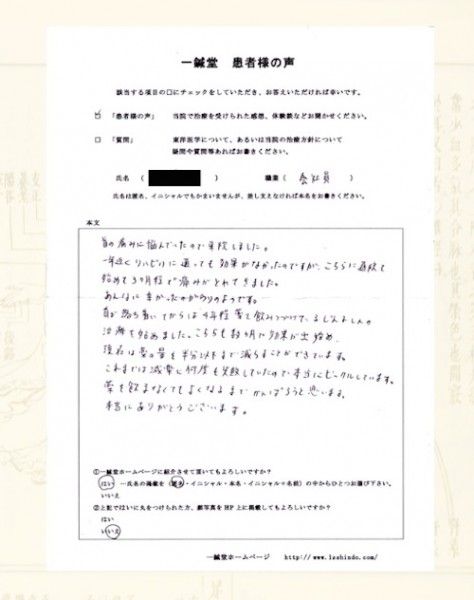 一鍼堂 患者様の声
該当する項目の□にチェックをしていただき、お答えいただければ幸いです。
「患者様の声」 当院で治療を受けられた感想、体験談などお聞かせください。
□ 「質問」 東洋医学について、あるいは当院の治療方針について
疑問や質問等あればお書きください。
氏名 ( ) 職業 ( 会社員 )
氏名は匿名、イニシャルでもかまいませんが、差し支えなければ本名をお書きください。
本文
首の痛みに悩んでいたので来院しました。
一年近くリハビリに通っても効果がなかったのですが、こちらに通院し
始めて3か月程で痛みがとれてきました。
あんなに辛かったのがウソのようです。
首が落ち着いてからは 年程 薬を飲みつづけている の
治療を始めました。こちらも数か月で効果が出始め、
現在は薬の量を半分以下まで減らすことができています。
これまでは減薬に何度も失敗していたので本当にビックリしています。
薬を飲まなくてもよくなるまでがんばろうと思います。
本当にありがとうございます。
①一鍼堂ホームページに紹介させて頂いてもよろしいですか?
はい →氏名の掲載を(匿名・イニシャル・本名・イニシャル+名前)の中からひとつお選び下さい。
いいえ
②上記ではいに丸をつけられた方、顔写真をHP上に掲載してもよろしいですか?
はい
いいえ
一鍼堂ホームページ http://www.isshindo.com/